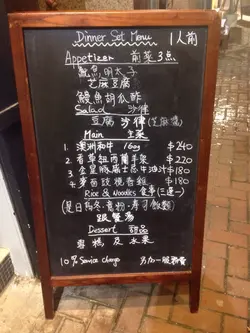 Dinner Set Menu 1人前
Appetizer 前菜3点
魷魚明太子
芝麻豆腐
鰻魚胡瓜酢
Salad 沙律
豆腐沙律(芝麻醬)
Main 主菜
1. 澳洲和牛 160g $240
2. 香草紐西蘭羊架 $220
3. 金銀瑞士芝士牛油汁 $180
4. $180
Rice & Noodles 食事(三選一)
(是日 壽司飯類)
跟餐湯
Dessert 甜品
雪糕及水果
10% Service Charge 另加一服務費